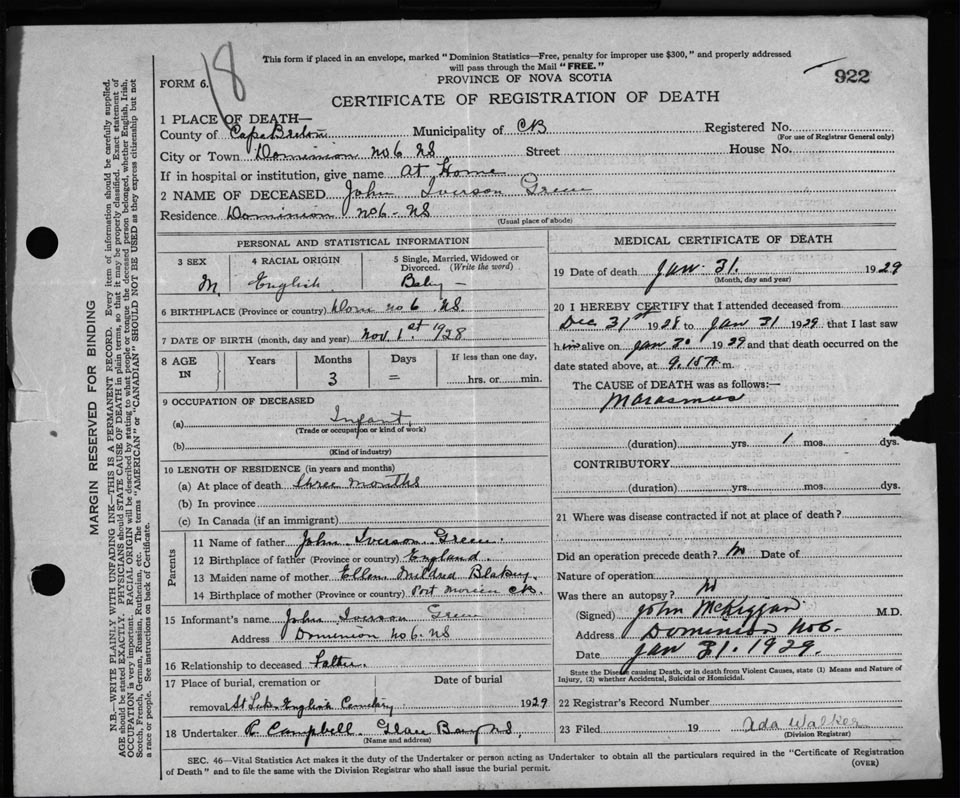 This form if placed in an envelope, marked "Dominion Statistics—Free, penalty for improper use $300," and properly addressed
will pass through the Mail "FREE."
PROVINCE OF NOVA SCOTIA
922
FORM 6.
18
CERTIFICATE OF REGISTRATION OF DEATH
1 PLACE OF DEATH—
County of Cape Breton Municipality of CB Registered No.
(For use of Registrar General only)
City or Town Dominion No 6 NS Street House No.
If in hospital or institution, give name At Home
2 NAME OF DECEASED John Iverson Green
Residence Dominion No 6 - NS
(Usual place of abode)
PERSONAL AND STATISTICAL INFORMATION
3 SEX 4 RACIAL ORIGIN 5 Single, Married, Widowed or Divorced. (Write the word)
M English Baby —
6 BIRTHPLACE (Province or country) Dom No 6 NS
7 DATE OF BIRTH (month, day and year) Nov 1st 1928
8 AGE IN Years Months Days If less than one day,
3 = hrs. or min.
9 OCCUPATION OF DECEASED
(a) Infant
(Trade or occupation or kind of work)
(b)
(Kind of industry)
10 LENGTH OF RESIDENCE (in years and months)
(a) At place of death three months
(b) In province
(c) In Canada (if an immigrant)
Parents
11 Name of father John Iverson Green
12 Birthplace of father (Province or country) England
13 Maiden name of mother Ellen Mildred Blakey
14 Birthplace of mother (Province or country) Port Morien CB
15 Informant's name John Iverson Green
Address Dominion No 6. NS
16 Relationship to deceased Father
17 Place of burial, cremation or Date of burial
removal English Cemetery 1929
18 Undertaker R Campbell Glace Bay NS
(Name and address)
MEDICAL CERTIFICATE OF DEATH
19 Date of death Jan. 31. 1929
(Month, day and year)
20 I HEREBY CERTIFY that I attended deceased from
Dec 31st 1928 to Jan 31 1929 that I last saw
him alive on Jan 30 1929 and that death occurred on the
date stated above, at 9.15 A m.
The CAUSE of DEATH was as follows:—
Marasmus
(duration) yrs. 1 mos. dys.
CONTRIBUTORY
(duration) yrs. mos. dys.
21 Where was disease contracted if not at place of death?
Did an operation precede death? No Date of
Nature of operation
Was there an autopsy? No
(Signed) John McKiggan M.D.
Address Dominion No 6.
Date Jan 31. 1929.
State the Disease causing Death, or in death from Violent Causes, state (1) Means and Nature of
Injury, (2) whether Accidental, Suicidal or Homicidal.
22 Registrar's Record Number
23 Filed 19 Ada Walker
(Division Registrar)
SEC. 46—Vital Statistics Act makes it the duty of the Undertaker or person acting as Undertaker to obtain all the particulars required in the "Certificate of Registration
of Death" and to file the same with the Division Registrar who shall issue the burial permit.
(OVER)
MARGIN RESERVED FOR BINDING
N.B.—WRITE PLAINLY WITH UNFADING INK—THIS IS A PERMANENT RECORD. Every item of information should be carefully supplied.
AGE should be stated EXACTLY. PHYSICIANS should STATE CAUSE OF DEATH in plain terms, so that it may be properly classified. Exact statement of
OCCUPATION is very important. RACIAL ORIGIN will be described by stating to what people or tongue the deceased person belonged, whether English, Irish,
Scotch, French, German, Russian, Ruthenian, etc. The terms "AMERICAN" or "CANADIAN" SHOULD NOT BE USED as they express citizenship but not
a race or people. See instructions on back of Certificate.